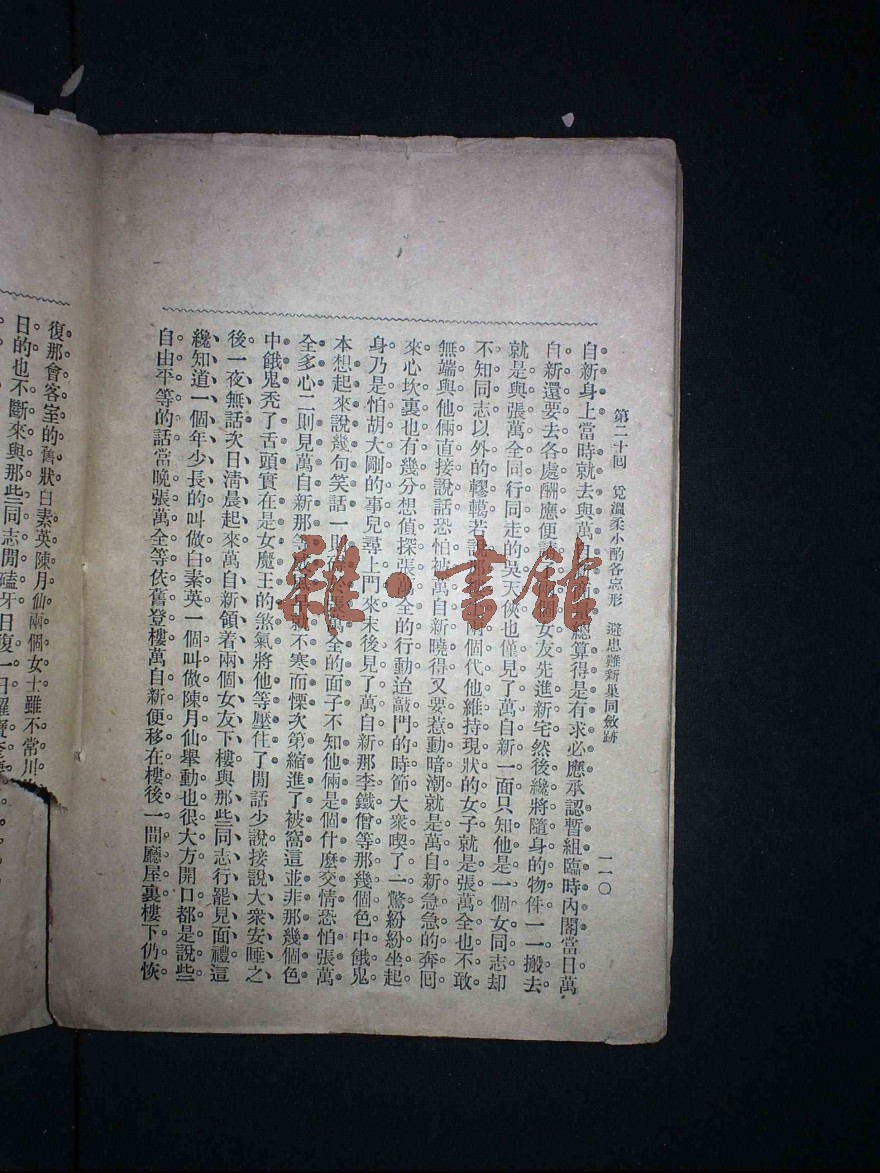 第二十回 覓溫柔小酌各忘形 避患難新巢同斂跡 一一〇
自新身上當時就去與萬 總算得是有求必應承認暫組臨時內閣當日萬
自新還要去各處酬應便 個女友先進新宅然後纔將隨身的物件一一搬去
就是與張萬全同行同走的吳天俠也僅見了萬自新一面只知他是一個女同志却
不知同志以外的轇轕若 兩個代他維持現狀的女子就是張萬全也不敢
無端與他倆直接說話恐怕被萬自新曉得又要惹動暗潮就是萬自新急急的奔囘
來心坎裏也有幾分想偵探張萬全的行動迨敲門的時節大衆喫了一驚紛紛坐起
身乃是怕胡大剛的事兒尋上門來末後見了萬自新那李鐵僧等那幾個色中餓鬼
本想起來說幾句笑話一 張萬全的面子不知他倆是個什麼交情恐怕張萬
全多心二則見萬自新那等 不寒而慄次第縮進了被窩這並非那幾個色
中餓鬼禿了舌頭實在是女魔王的煞氣將他等壓住了閒話少說接說大衆安睡之
後一夜無話次日清晨起來萬自新領着兩個女友下樓與那些同志行罷見面禮這
纔知道一個年少長的叫做白素英一個叫做陳月仙舉動也很大方開口都是說些
自由平等的話當晚張萬全等依舊登樓萬自新便移在樓後一間廳屋裏樓下仍恢
復那會客室的舊狀白素英陳月仙兩個女士雖不常川
目的也不斷來與那些同志閒磕牙日復一日
雜·書館